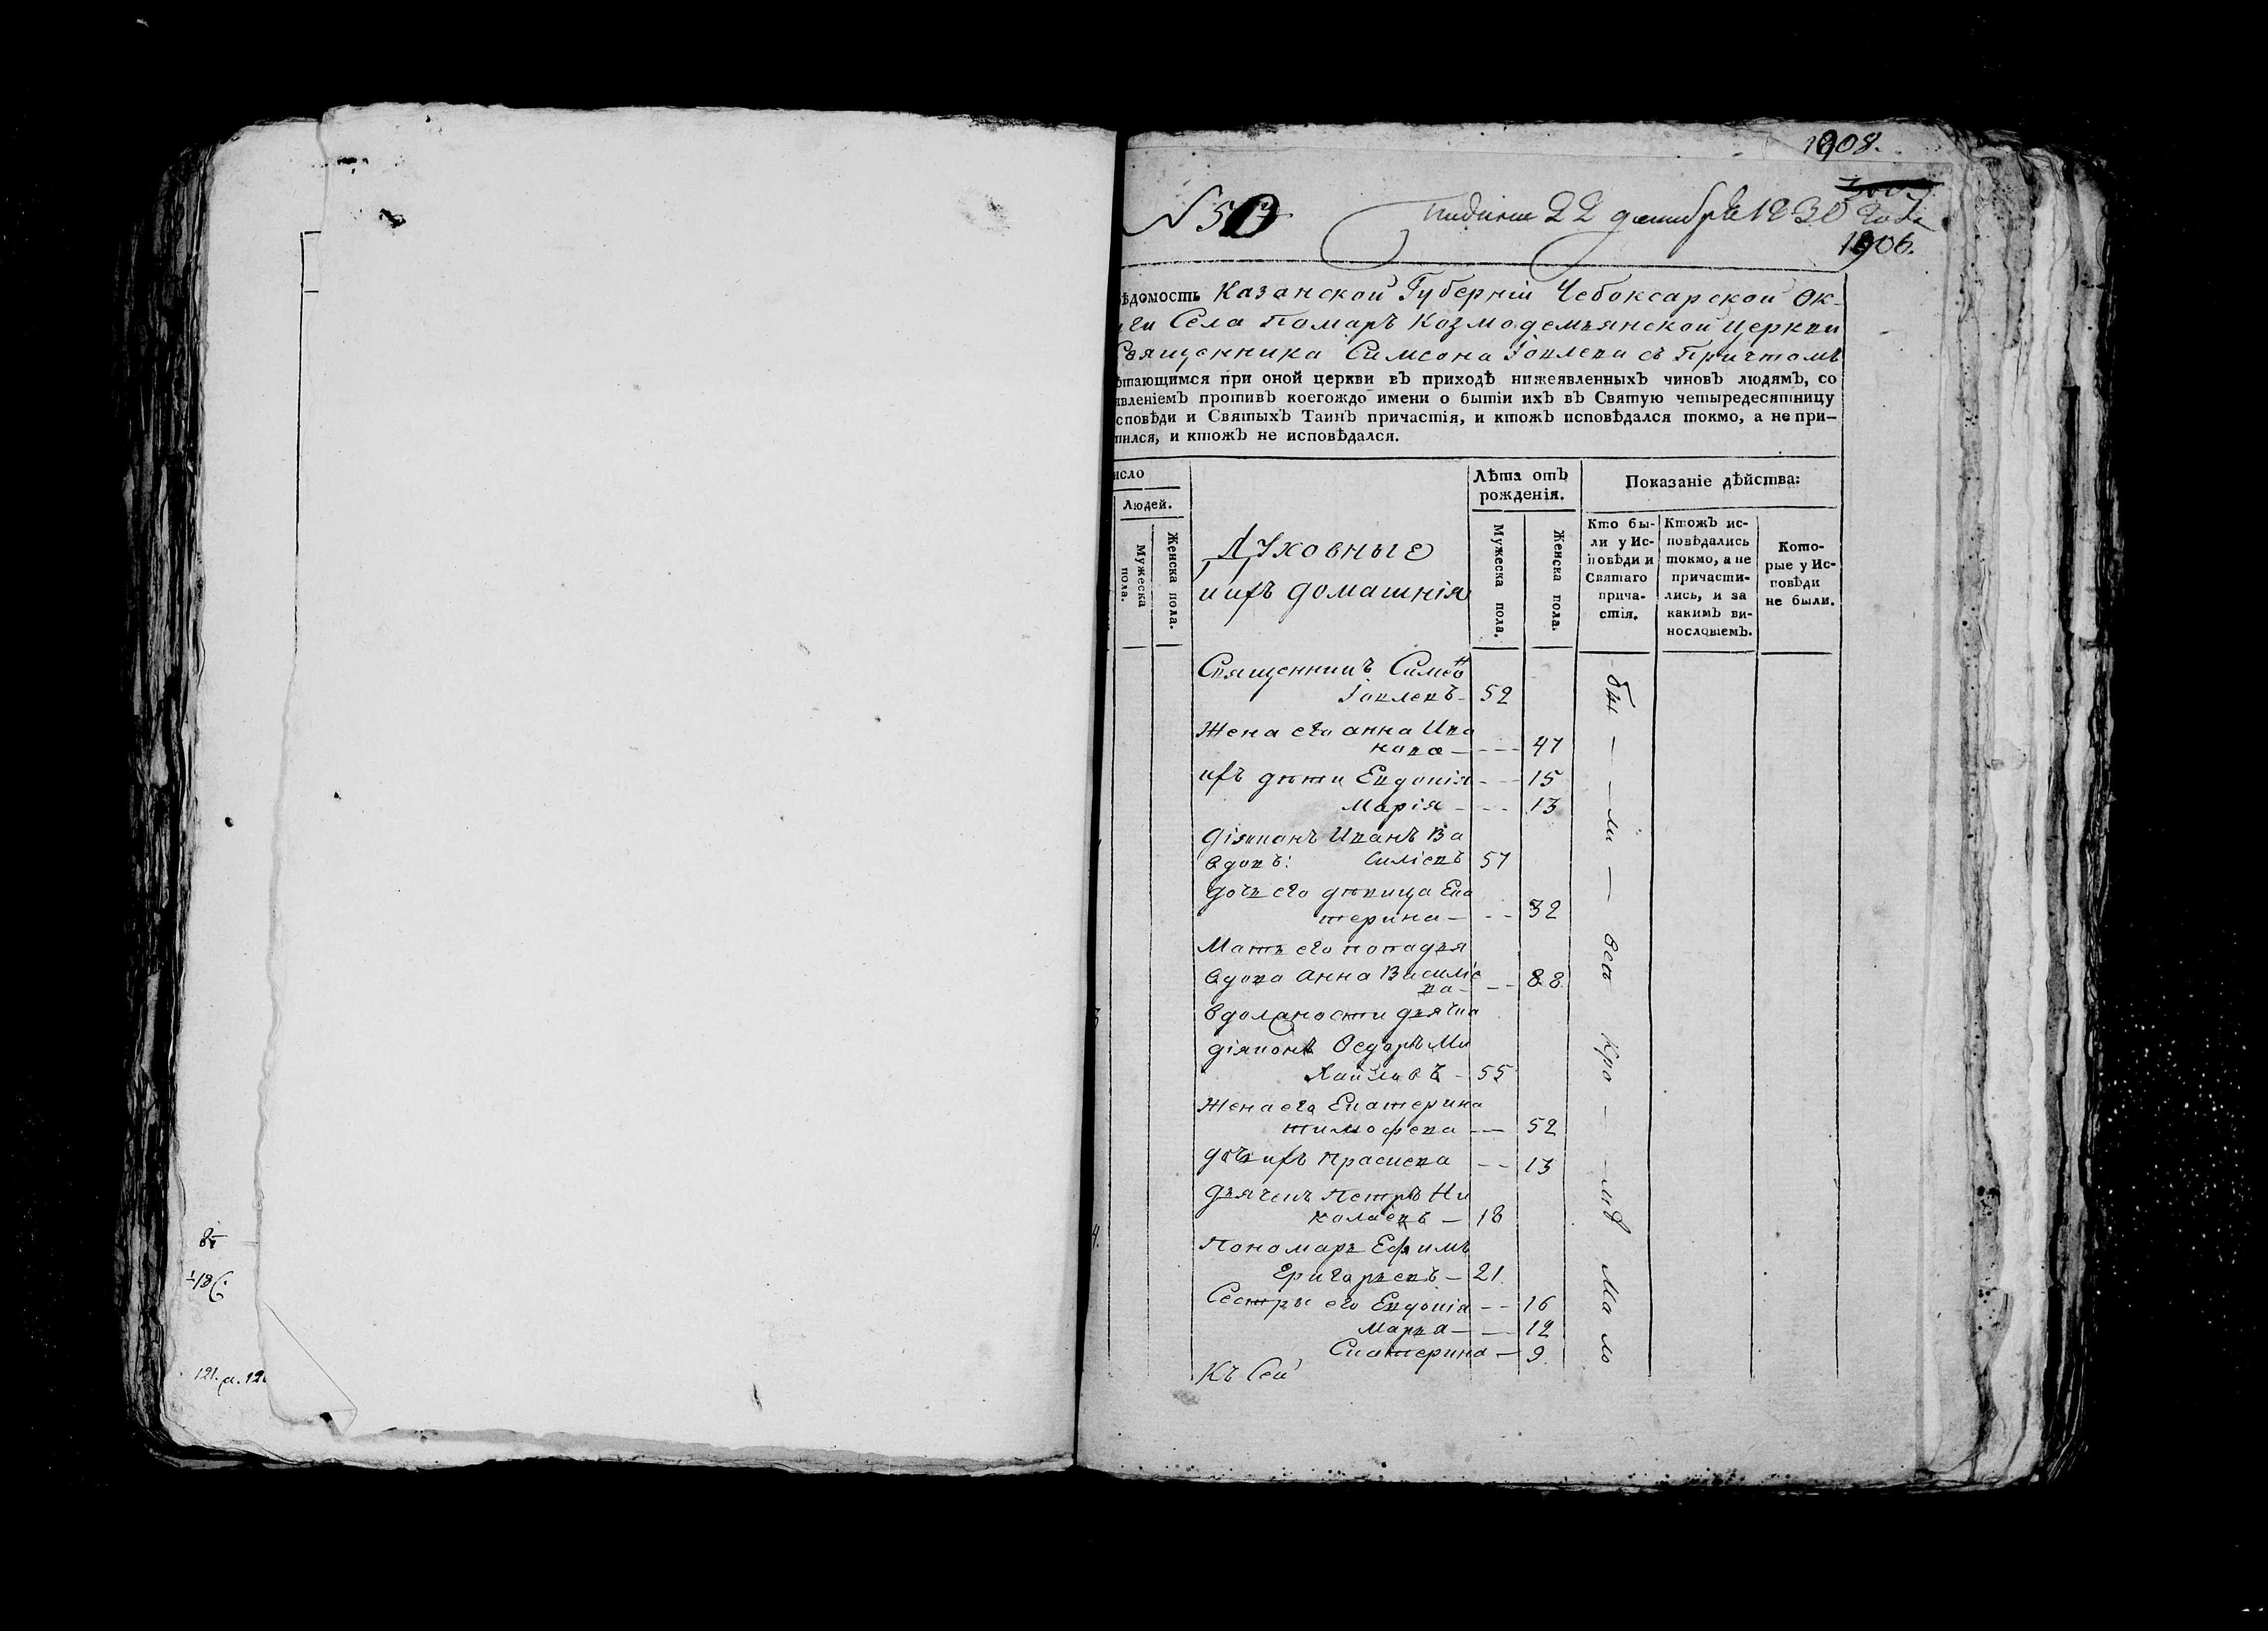 1908.
N 50
22 декабря 1830 года
1906.
ѣдомость Казанской Губерніи Чебоксарской Ок-
Села Помаръ Козмодемьянской церкви
Священника Симеона Іовлева съ Причтомъ
ѣтающимся при оной церкви въ приходѣ нижеявленныхъ чиновъ людямъ, со
явленіемъ противъ коегождо имени о бытіи ихъ въ Святую четыредесятницу
споѣди и Святыхъ Таинъ причастія, и ктожъ исповѣдался токмо, а не при-
тился, и ктожъ не исповѣдался.
исло
Людей.
Мужеска пола.
Женска пола.
Духовныe
и ихъ домашнія
Лѣта отъ рожденія.
Мужеска пола.
Женска пола.
Показаніе дѣйства:
Кто бы-
ли у Ис-
повѣди и
Святаго
прича-
стія.
Ктожъ ис-
повѣдались
токмо, а не
причасти-
лись, и за
какимъ ви-
нословіемъ.
Кото-
рые у Ис-
повѣди
не были.
Священникъ Симеонъ
Іовлевъ 52
Жена его анна Ива
нова 47
ихъ дѣти Евдокія 15
Марія 13
діяконъ Иванъ Ва
вдовъ: силіевъ 57
дочь его дѣвица Ека
терина 32
Мать его попадья
вдова анна Василіе
ва 88
в должности дьячка
діяконъ Ѳедоръ Ми
хайловъ 55
Жена его Екатерина
тимофева 52
дочь ихъ праскева 13
дьячекъ Петръ Ни
колаевъ 18
Пономарь Ефимъ
Григорьевъ 21
Сестры его Евдокія 16
Марья 12
Екатерина 9
Къ сей
бы ли все кро мѣ ма ло